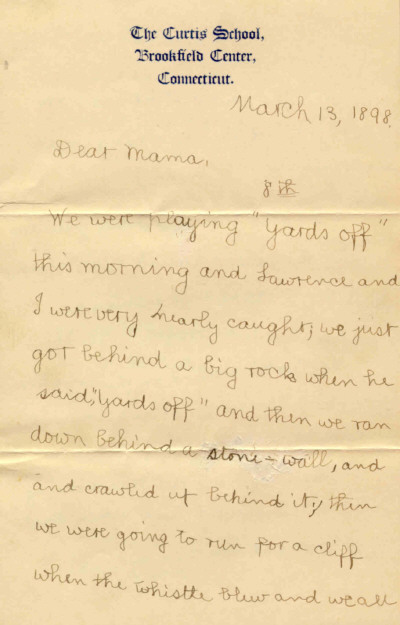 The Curtis School,
Brookfield Center,
Connecticut.
March 13, 1898.
Dear Mama,
8 th
We were playing "Yards off"
this morning and Lawrence and
I were very nearly caught; we just
got behind a big rock when he
said, "Yards off" and then we ran
down behind a stone-wall, and
and crawled up behind it, then
we were going to run for a cliff
when the whistle blew and we all